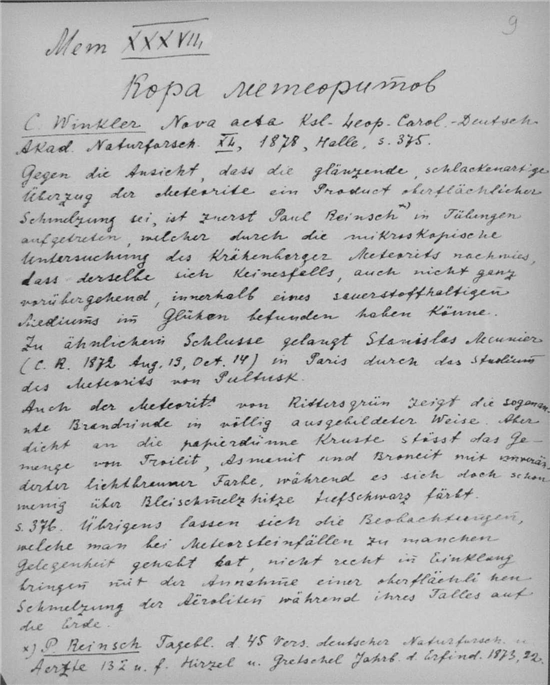 9
Mem XXXVII,
Кора метеоритов
C. Winkler Nova acta Ksl. Leop. Carol.-Deutsch
Akad. Naturforsch. XL, 1878, Halle, s. 375.
Gegen die Ansicht, dass die glänzende, schlackenartige
Überzug der Meteorite ein Product oberflächlicher
Schmelzung sei, ist zuerst Paul Reinsch x) in Tübingen
aufgetreten, welcher durch die mikroskopische
Untersuchung des Krähenberger Meteorits nachwies,
dass derselbe sich keinesfalls, auch nicht ganz
vorübergehend, innerhalb eines sauerstoffhaltigen
Mediums im Glühen befunden haben könne.
Zu ähnlichem Schlusse gelangt Stanislas Meunier
(C. R. 1872 Aug. 13, Oct. 14) in Paris durch das Studium
des Meteorits von Pultusk.
Auch der Meteorit von Rittersgrün zeigt die sogenan-
nte Brandrinde in völlig ausgebildeter Weise. Aber
dicht an die papierdünne Kruste stösst das Ge-
menge von Troilit, Asmanit und Broncit mit unverän-
derter lichtbrauner Farbe, während es sich doch schon
wenig über Bleischmelzhitze tiefschwarz färbt.
s. 376. Übrigens lassen sich die Beobachtungen,
welche man bei Meteorsteinfällen zu manchen
Gelegenheit gehabt hat, nicht recht in Einklang
bringen mit der Annahme einer oberflächlichen
Schmelzung der Aëroliten während ihres Falles auf
die Erde.
x) P. Reinsch Tagebl. d 45 Vers. deutscher Naturforsch. u.
Aerzte 132 u. f. Hirzel u. Gretschel Jahrb. d. Erfind. 1873, 22.